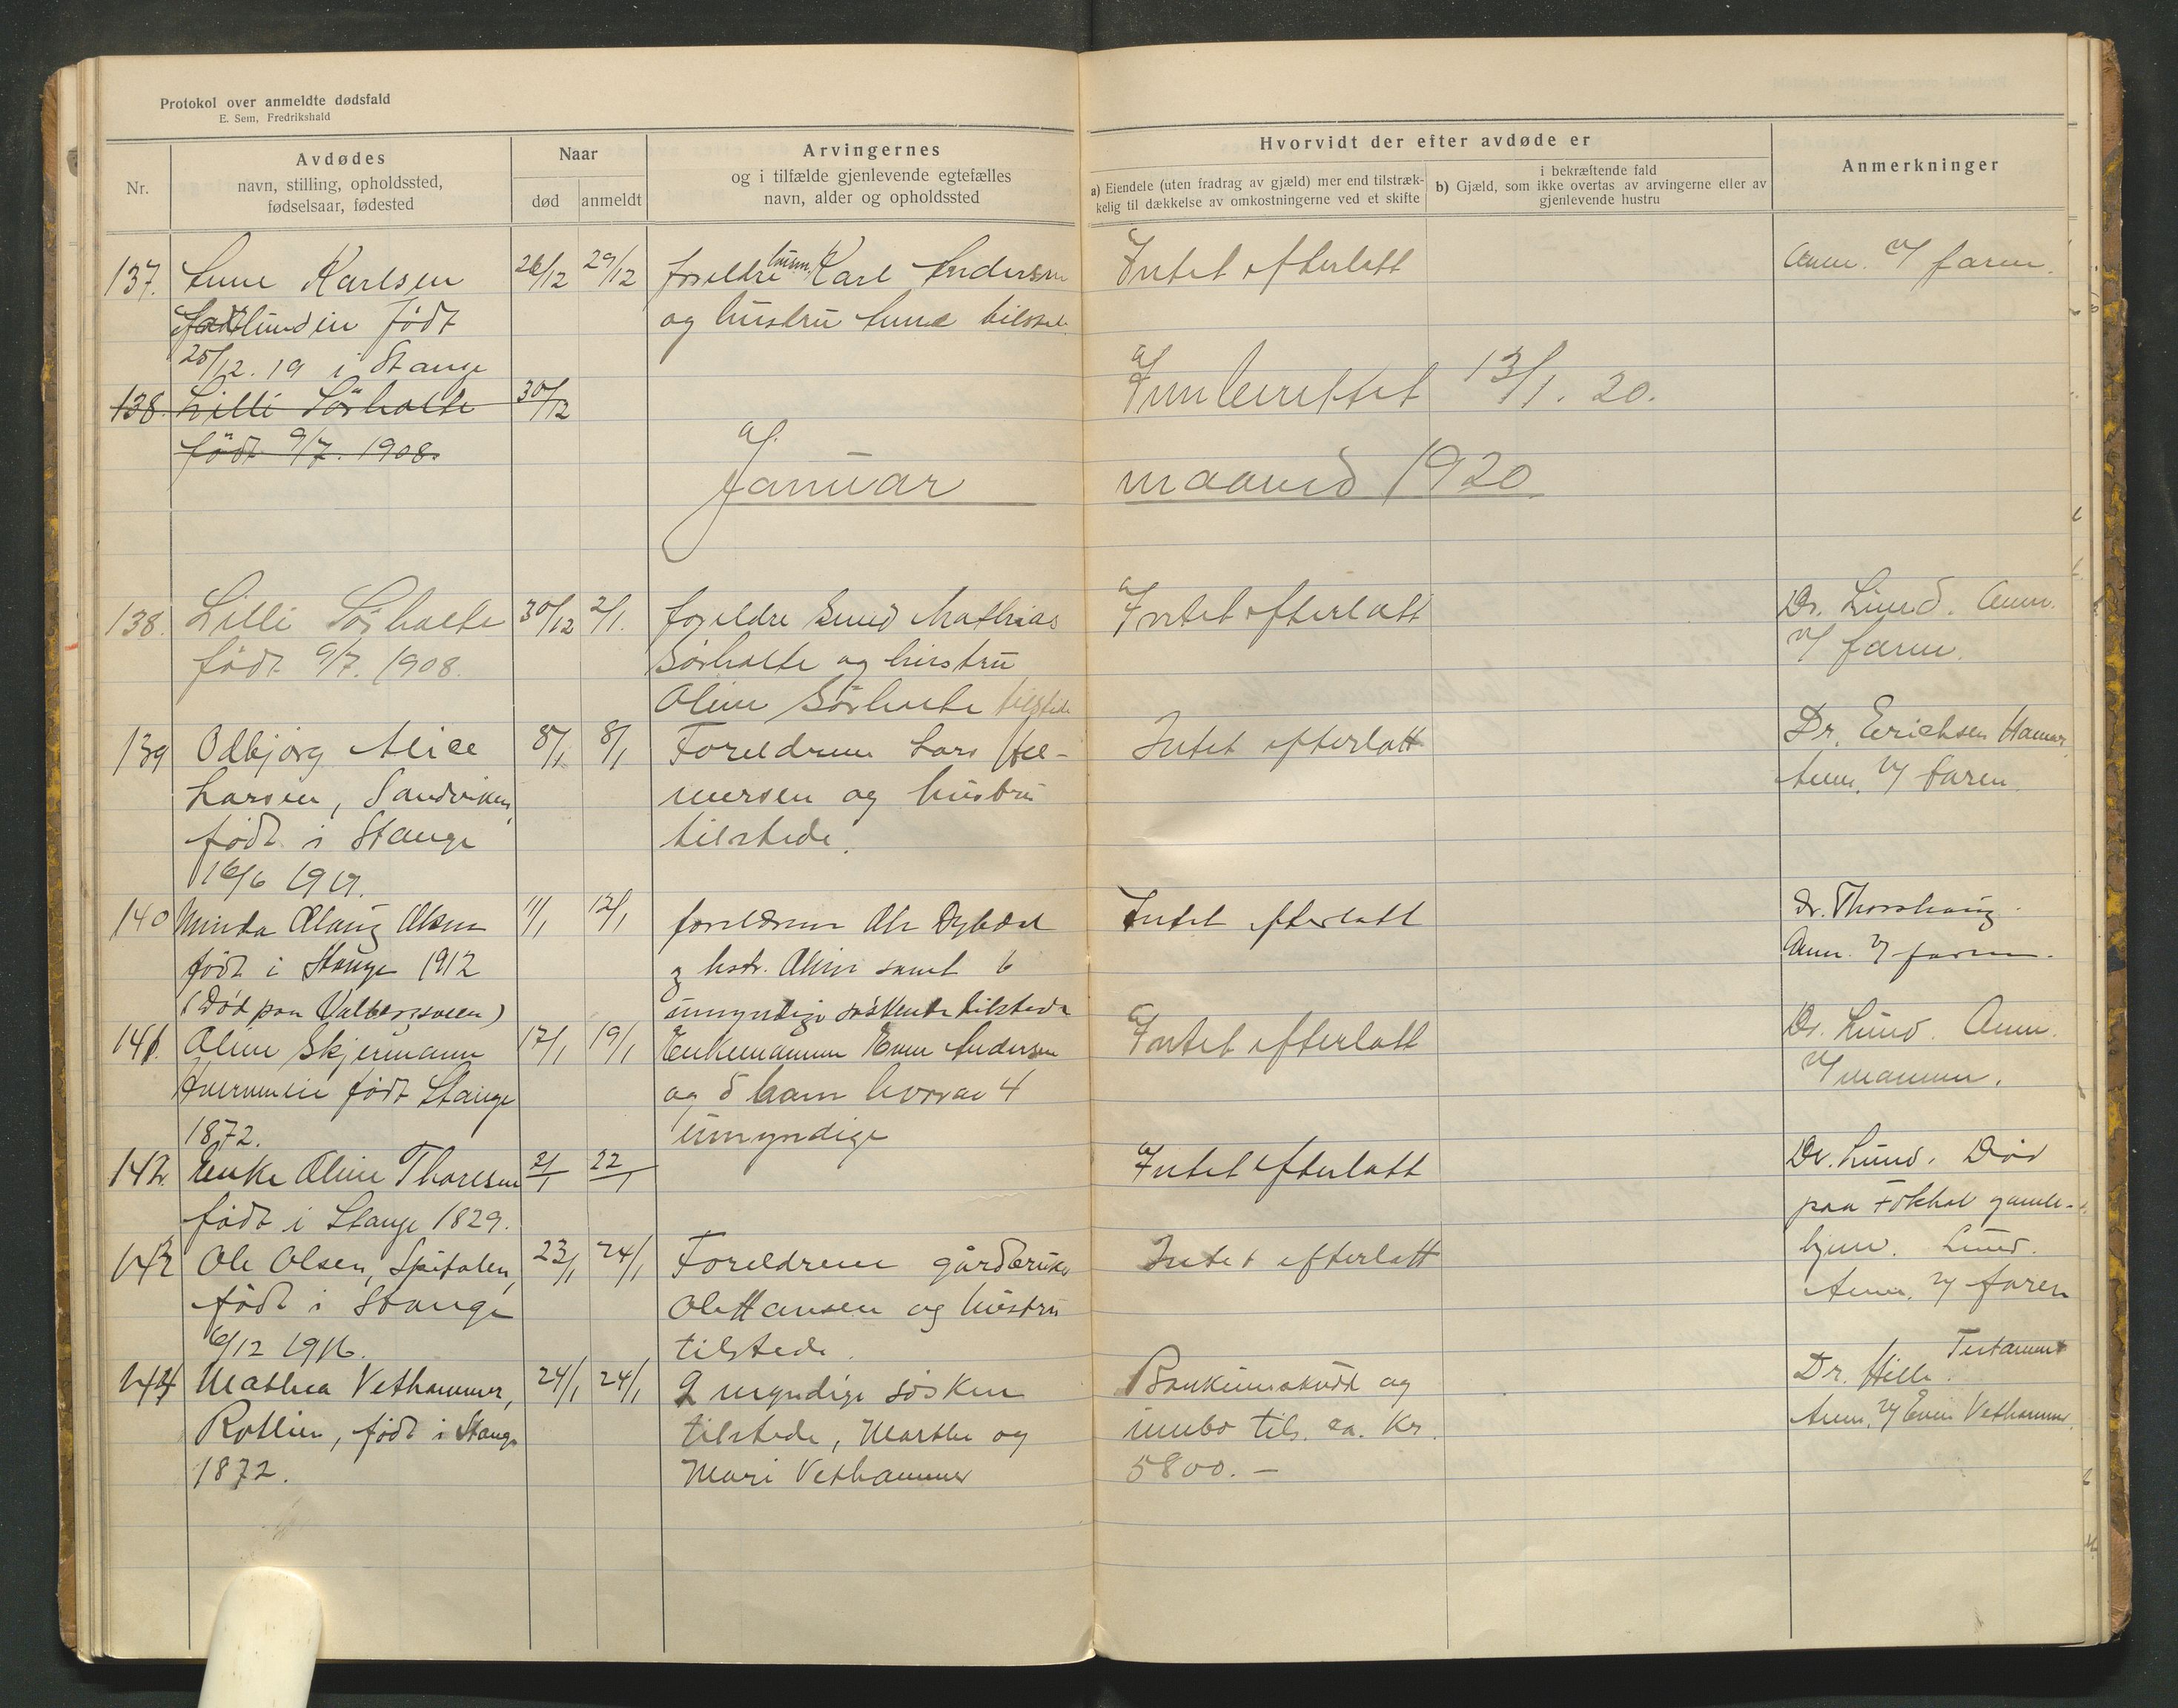 Protokol over anmeldte dødsfald
E. Sem, Fredrikshald
Nr.
Avdødes
navn, stilling, opholdssted,
fødselsaar, fødested
Naar
død
anmeldt
Arvingernes
og i tilfælde gjenlevende egtefælles
navn, alder og opholdssted
Hvorvidt der efter avdøde er
a) Eiendele (uten fradrag av gjæld) mer end tilstræk-
kelig til dækkelse av omkostningerne ved et skifte
i bekræftende fald
b) Gjæld, som ikke overtas av arvingerne eller av
gjenlevende hustru
Anmerkninger
137. Karlsen 26/12 29/12 foreldre Karl Andersen Intet efterlatt Anm. v/ faren.
født og hustru tilsted.
25/12. 19 i Stange
138. Lilli Sörholte 30/12 Innberettet 13/1. 20.
født 9/7. 1908.
Januar maaned 1920
138. Lilli Sörholte 30/12 2/1. foreldre Mathias Intet efterlatt Dr. Lund. Anm.
født 9/7. 1908. Sörholte og hustru v/ faren.
Oline Sörholte tilstede
139 Odbjørg Alice 8/1 8/1 Foreldrene Lars Hel- Intet efterlatt Dr. Erichsen Hamar
Larsen, Sandviken, mersen og hustru Anm. v/ faren.
født i Stange tilstede.
16/6 1919.
140 Minda Olaug Olsen 11/1 12/1 foreldrene Ole Dybdal Intet efterlatt Dr. Thorshaug.
født i Stange 1912 og hstr. Oline samt 6 Anm. v/ faren.
(Død paa ) umyndige søskende tilstede
141. Oline Skjermann 17/1 19/1 Enkemannen Even Andersen Intet efterlatt Dr. Lund. Anm.
født Stange og 5 barn hvorav 4 v/ mannen.
1872. umyndige
142. Enke Oline Thoresen 2/1 22/1 Intet efterlatt Dr. Lund. Død
født i Stange 1829. paa Fokhol gamle-
hjem. Lund.
143 Ole Olsen, Spitalen, 23/1 24/1 Foreldrene gårdbruker Intet efterlatt Anm. v/ faren
født i Stange Ole Hansen og hustru
6/12 1916. tilstede.
144 Mathea Vethammer, 24/1 24/1 2 myndige søsken Bankinnskudd og Dr. Hille. Testament
Rotlien, født i Stange tilstede, Marthe og innbo tils. ca. Kr. Anm. v/ Even Vethammer.
1872. Mari Vethammer 5800.-